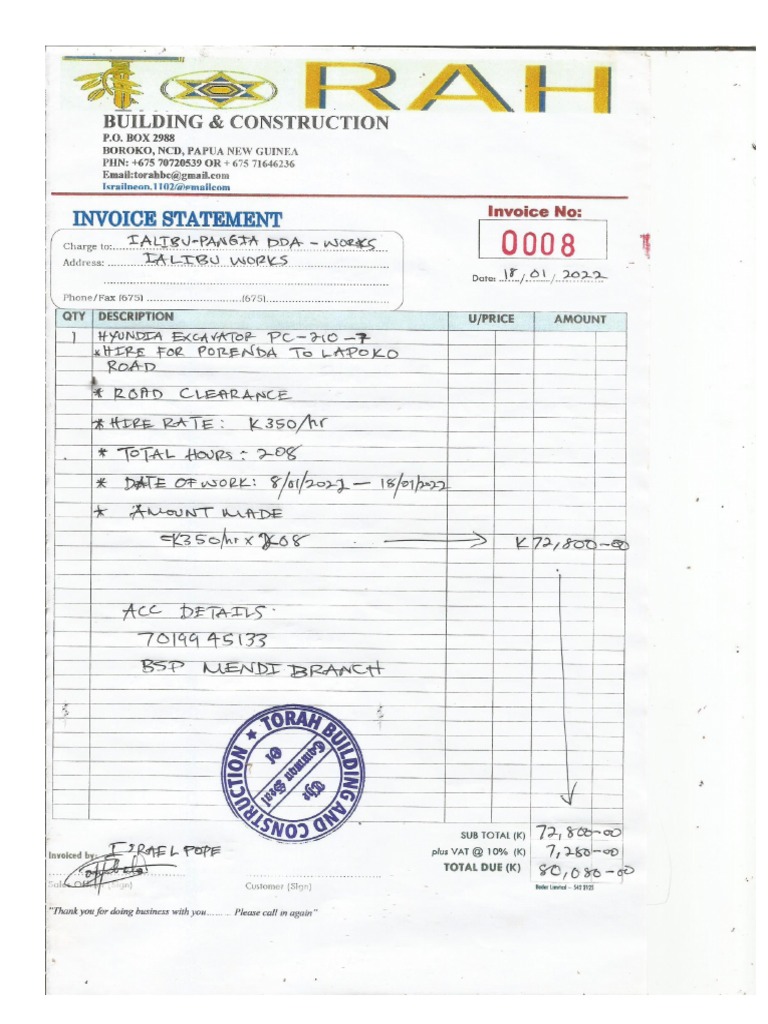 TORAH
BUILDING & CONSTRUCTION
P.O. BOX 2988
BOROKO, NCD, PAPUA NEW GUINEA
PHN: +675 70720539 OR + 675 71646236
Email:torahbc@gmail.com
Israilneon.1102/@gmailcom
INVOICE STATEMENT
Invoice No:
0008
Charge to: IALIBU-PANGIA DDA - WORKS
Address: IALIBU WORKS
Date: 18/01/2022
Phone/Fax (675) (675)
QTY DESCRIPTION U/PRICE AMOUNT
1 HYUNDIA EXCAVATOR PC-210-7
*HIRE FOR PORENDA TO LAPOKO
ROAD
* ROAD CLEARANCE
*HIRE RATE: K350/hr
* TOTAL HOURS: 208
* DATE OF WORK: 8/01/2021 - 18/01/2022
* AMOUNT MADE
=K350/hr x 208 K72,800-00
ACC DETAILS
7019945133
BSP MENDI BRANCH
TORAH BUILDING AND CONSTRUCTION
The Common Seal Of
SUB TOTAL (K) 72,800-00
plus VAT @ 10% (K) 7,280-00
TOTAL DUE (K) 80,080-00
Invoiced by: ISRAEL POPE
(Sign)
Customer (Sign)
"Thank you for doing business with you........ Please call in again"